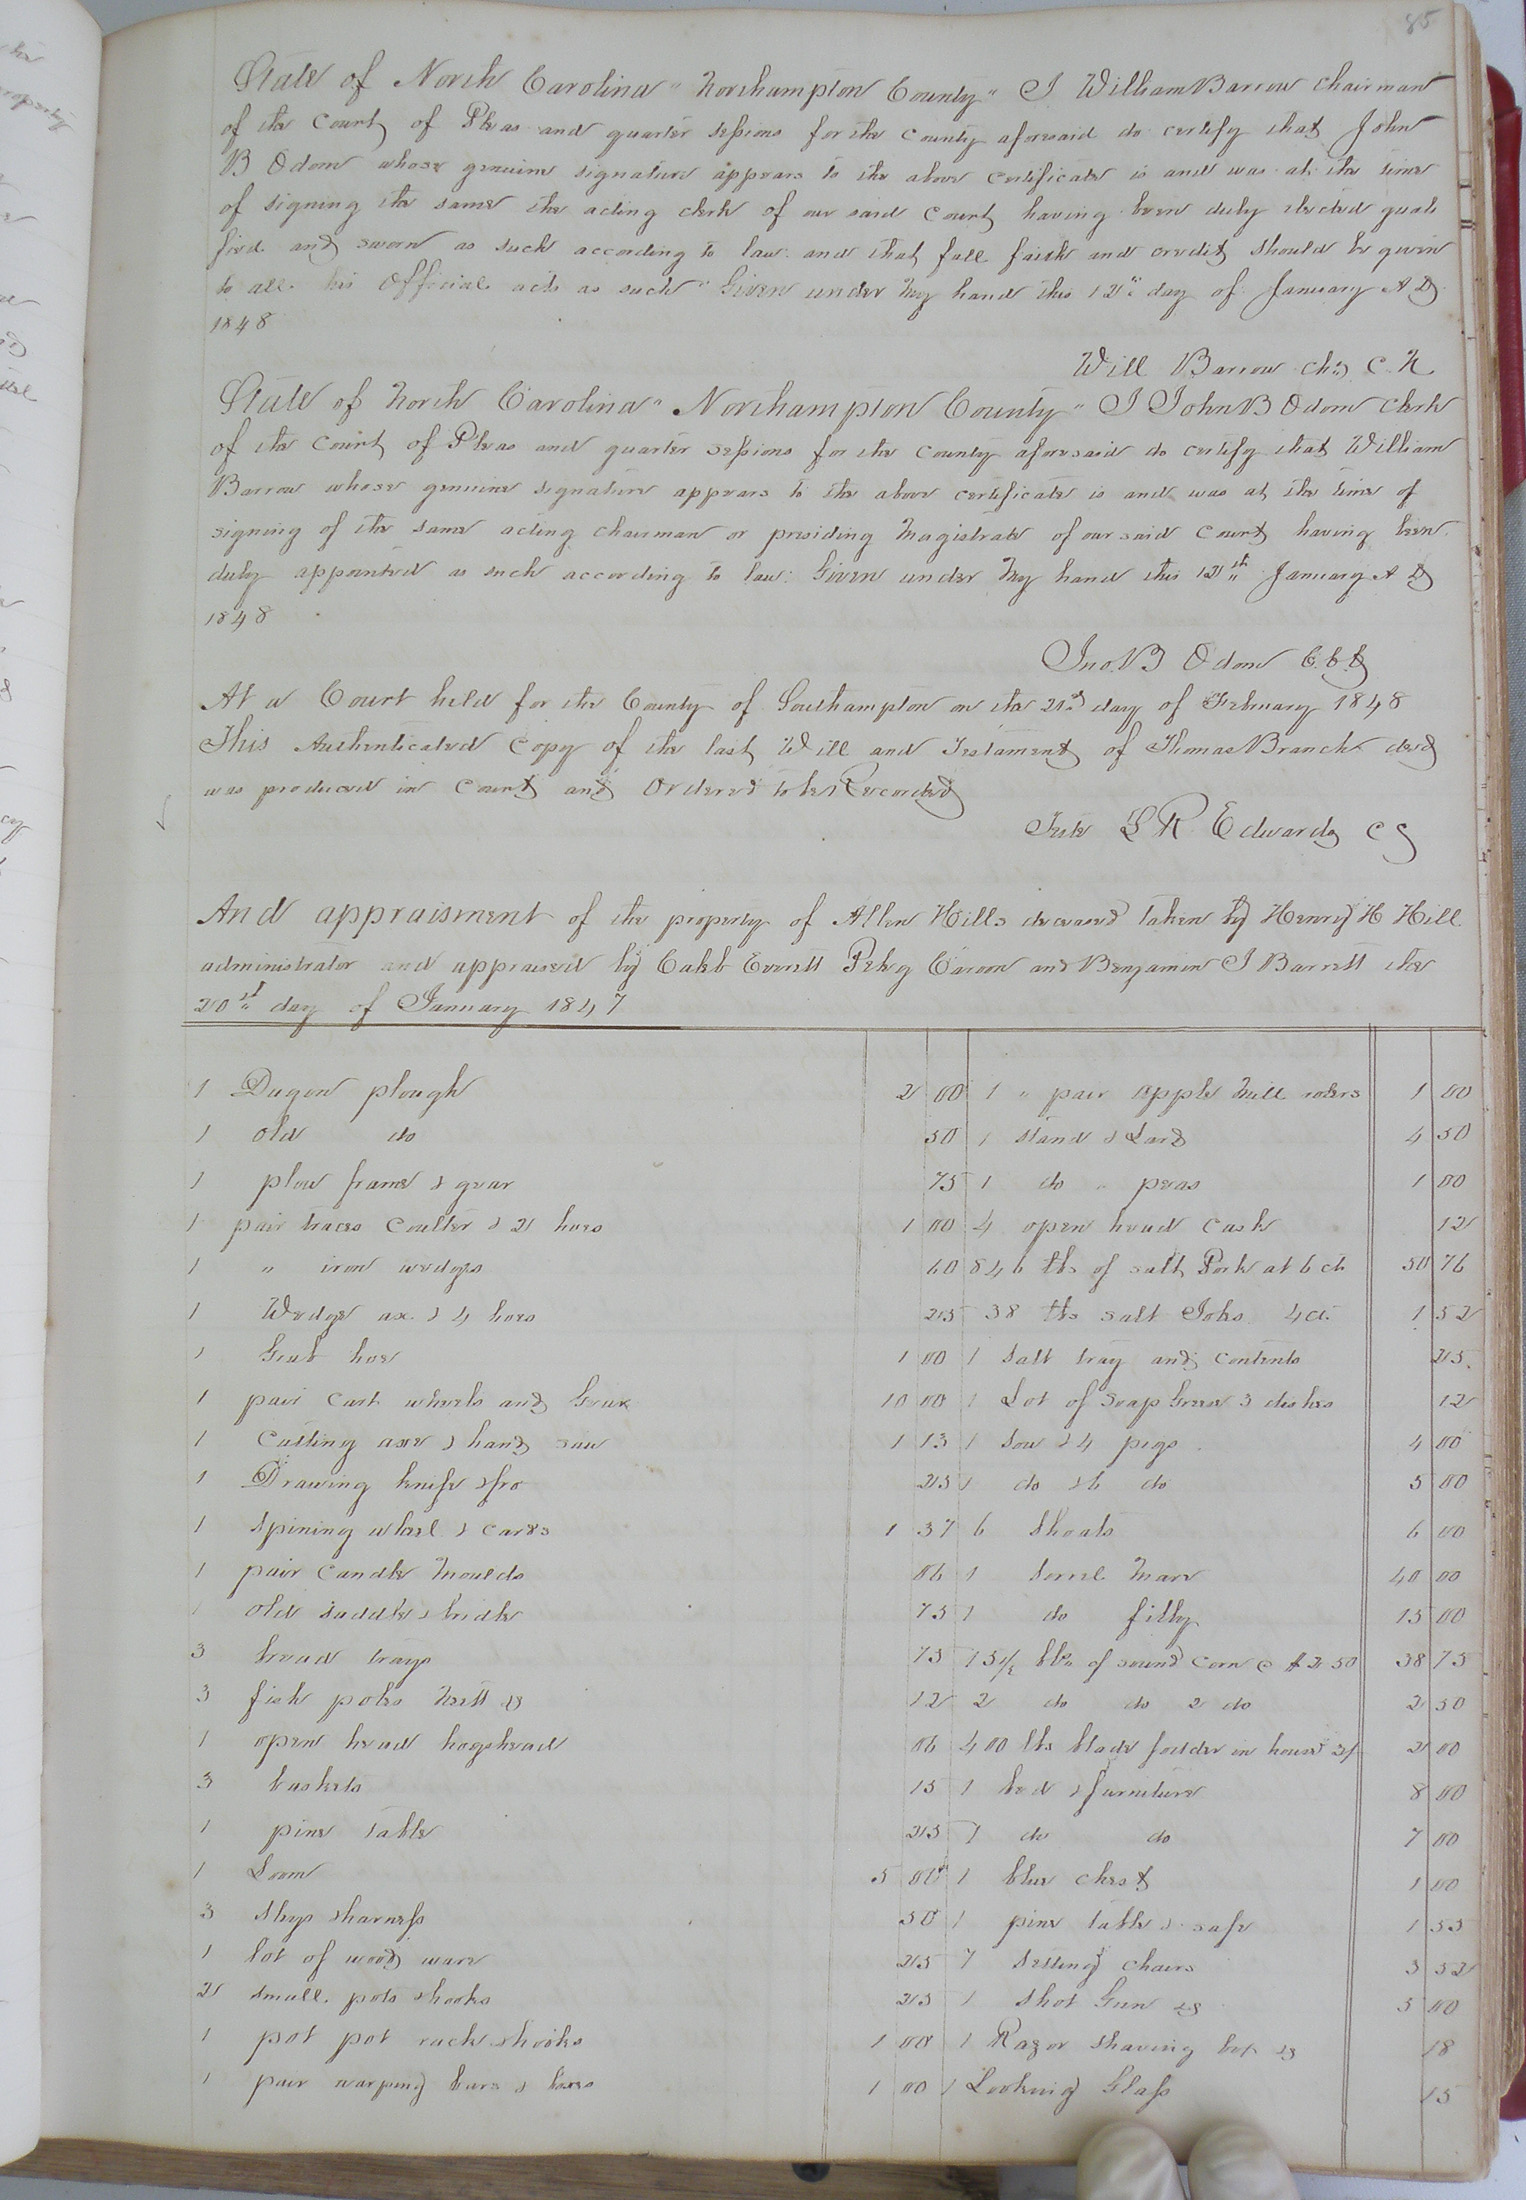 85
State of North Carolina " Northampton County " I William Barrow Chairman
of the Court of Pleas and quarter sessions for the County aforesaid do certify that John
B Odom whose genuine signature appears to the above certificate is and was at the time
of signing the same the acting clerk of our said Court having been duly elected quali
fied and sworn as such according to law and that full faith and credit should be given
to all his Official acts as such " Given under my hand this 12th day of January A D
1848
Will Barrow chn C. K
State of North Carolina " Northampton County " I John B Odom Clerk
of the Court of Pleas and quarter sessions for the County aforesaid do certify that William
Barrow whose genuine signature appears to the above certificate is and was at the time of
signing of the same acting chairman or presiding magistrate of our said Court having been
duly appointed as such according to law. Given under my hand this 12th January A D
1848
Jno. B Odom C.C.C
At a Court held for the County of Southampton on the 21st day of February 1848
This Authenticated Copy of the last Will and Testament of Thomas Branch decd
was produced in Court and Ordered to be Recorded
Teste L R Edwards C S
And appraisment of the property of Allen Hills deceased taken by Henry H Hill
administrator and appraised by Caleb Everett Peleg Caroon and Benjamin J Barrett the
20th day of January 1847
1 Dagon plough 2 00 1 " pair apple mill rolers 1 00
1 old do 50 1 stand & Lard 4 50
1 plow frame & gear 75 1 do " peas 1 00
1 pair traces Coulter & 2 hoes 1 00 4 open head cask 12
1 " iron wedges 60 846 lbs of salt Pork at 6 ct 50 76
1 Wedge ax & 4 hoes 25 38 lbs salt Joles 4 ct 1 52
1 Grub hoe 1 00 1 Salt tray and contents 25
1 pair cart wheels and Gear 10 00 1 Lot of Soap Grease 3 dishes 12
1 Cutting axe & hand saw 1 13 1 Sow & 4 pigs 4 00
1 Drawing knife & fro 25 1 do & 6 do 5 00
1 Spining wheel & cards 1 37 6 Shoats 6 00
1 pair Candle Moulds 06 1 Sorrel Mare 40 00
1 old saddle & bridle 75 1 do filly 15 00
3 bread trays 75 15 1/2 bbls of sound corn @ $2 50 38 75
3 fish poles Nett &c 12 2 do do 2 do 2 50
1 open head hogshead 06 400 lbs blade fodder in house 3/ 2 00
3 baskets 15 1 bed & furniture 8 00
1 pine table 25 1 do do 7 00
1 Loom 5 00 1 blue chest 1 00
3 Slays & harness 50 1 pine table & safe 1 55
1 lot of wood ware 25 7 setting chairs 3 52
2 small pots & hooks 25 1 Shot Gun &c 5 00
1 pot pot rack & hooks 1 00 1 Razor Shaving box &c 18
1 pair warping bars & boxes 1 00 1 Looking Glass 15